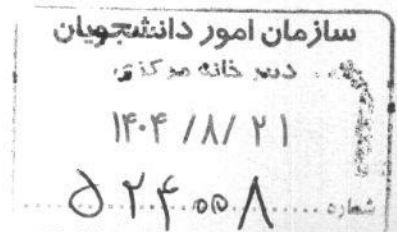 سازمان امور دانشجویان
دبیرخانه مرکزی
۱۴۰۴/۸/۲۱
شماره ۵۲۴۵۵۸